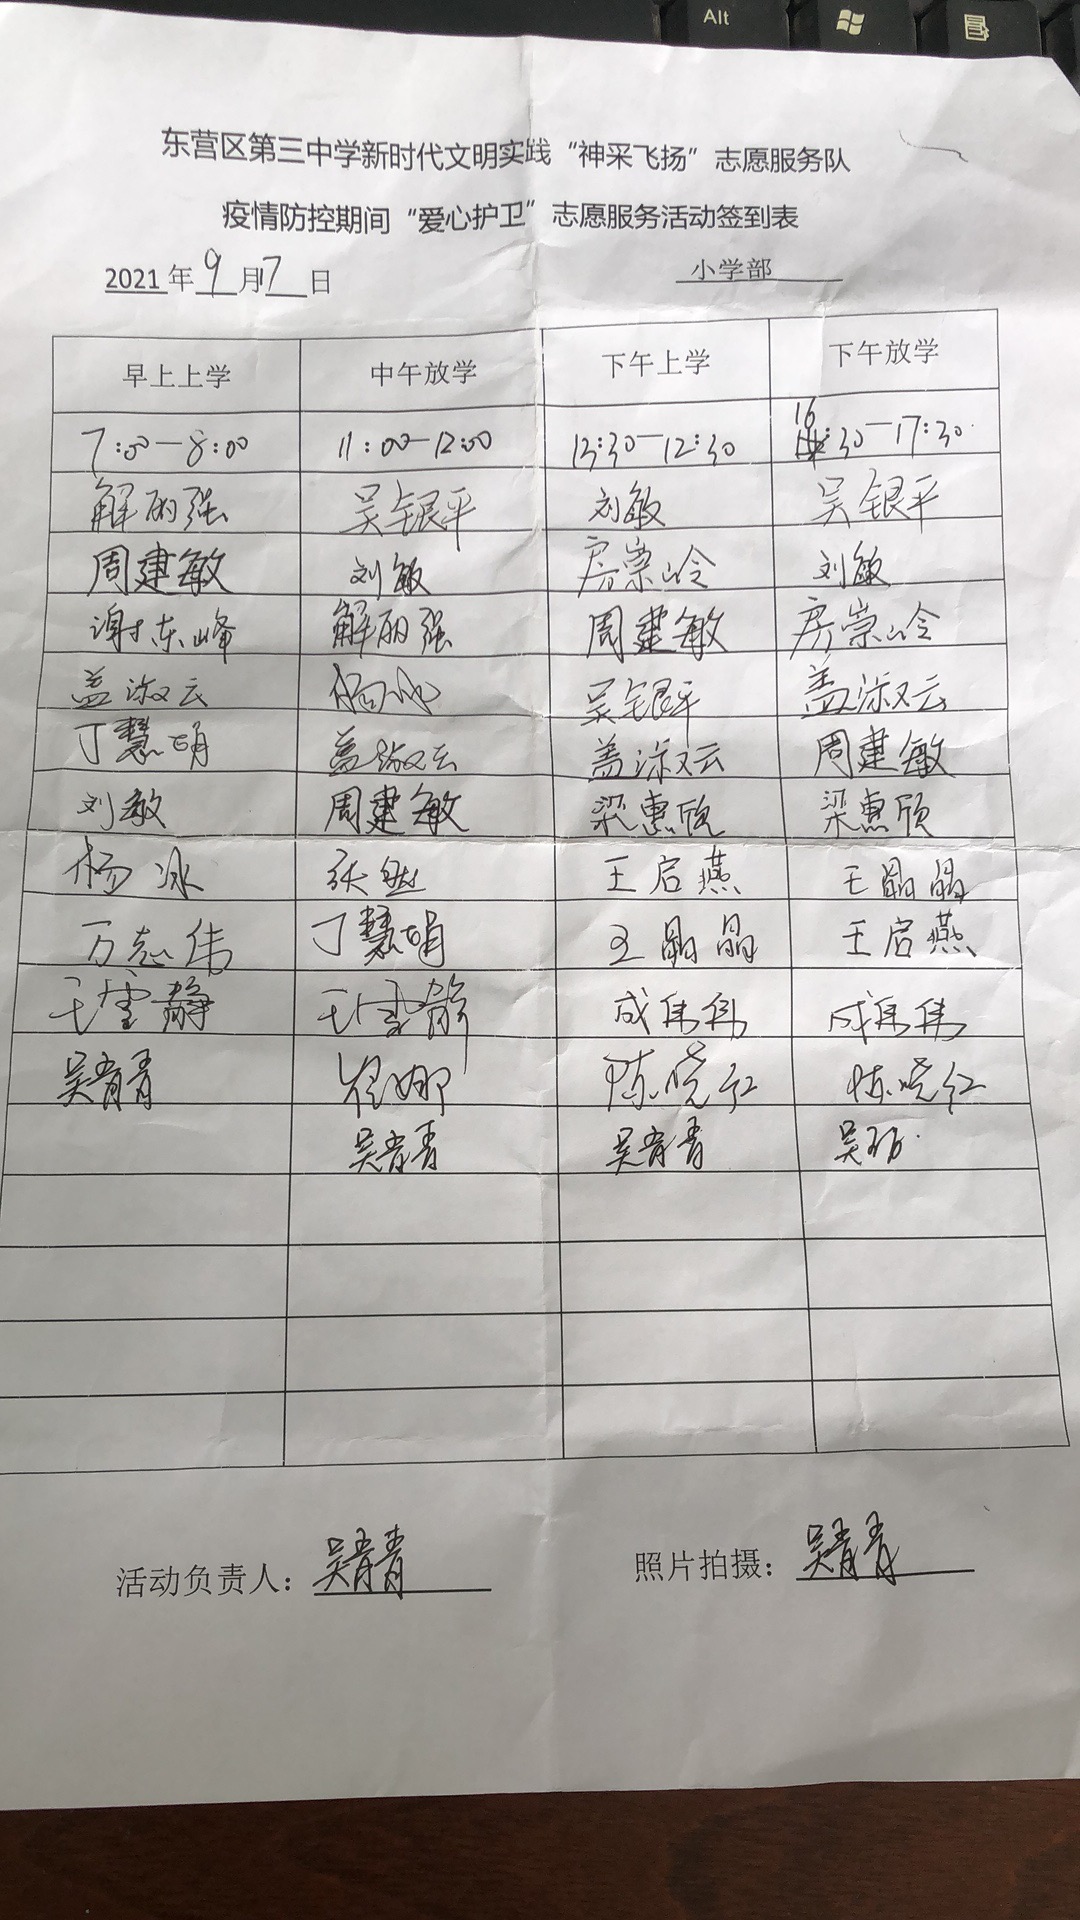 Alt
东营区第三中学新时代文明实践“神采飞扬”志愿服务队
疫情防控期间“爱心护卫”志愿服务活动签到表
2021年9月7日 小学部
早上上学 中午放学 下午上学 下午放学
7:00—8:00 11:00—12:00 13:30—12:30 16:30—17:30
解丽强 吴银平 刘敏 吴银平
周建敏 刘敏 房崇岭 刘敏
谢东峰 解丽强 周建敏 房崇岭
盖淑云 杨冰 吴银平 盖淑云
丁慧娟 盖淑云 盖淑云 周建敏
刘敏 周建敏 梁惠欣 梁惠欣
杨冰 张然 王启燕 王晶晶
万志伟 丁慧娟 王晶晶 王启燕
王雪静 王雪静 成伟伟 成伟伟
吴青青 崔娜 陈晓红 陈晓红
吴青青 吴青青 吴
活动负责人：吴青青 照片拍摄：吴青青